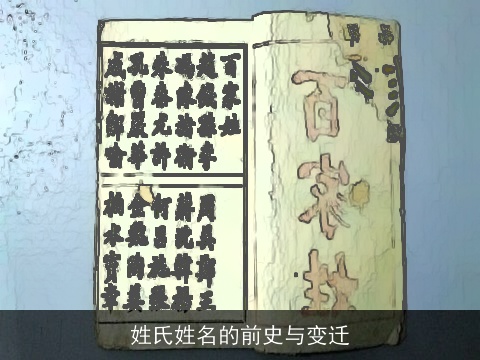 百家
百家姓
趙錢孫李
馮陳褚衛
朱秦尤許
孔曹嚴華
戚謝鄒喻
周吳鄭王
蔣沈韓楊
何呂施張
金魏陶姜
柏水竇章
姓氏姓名的前史与变迁